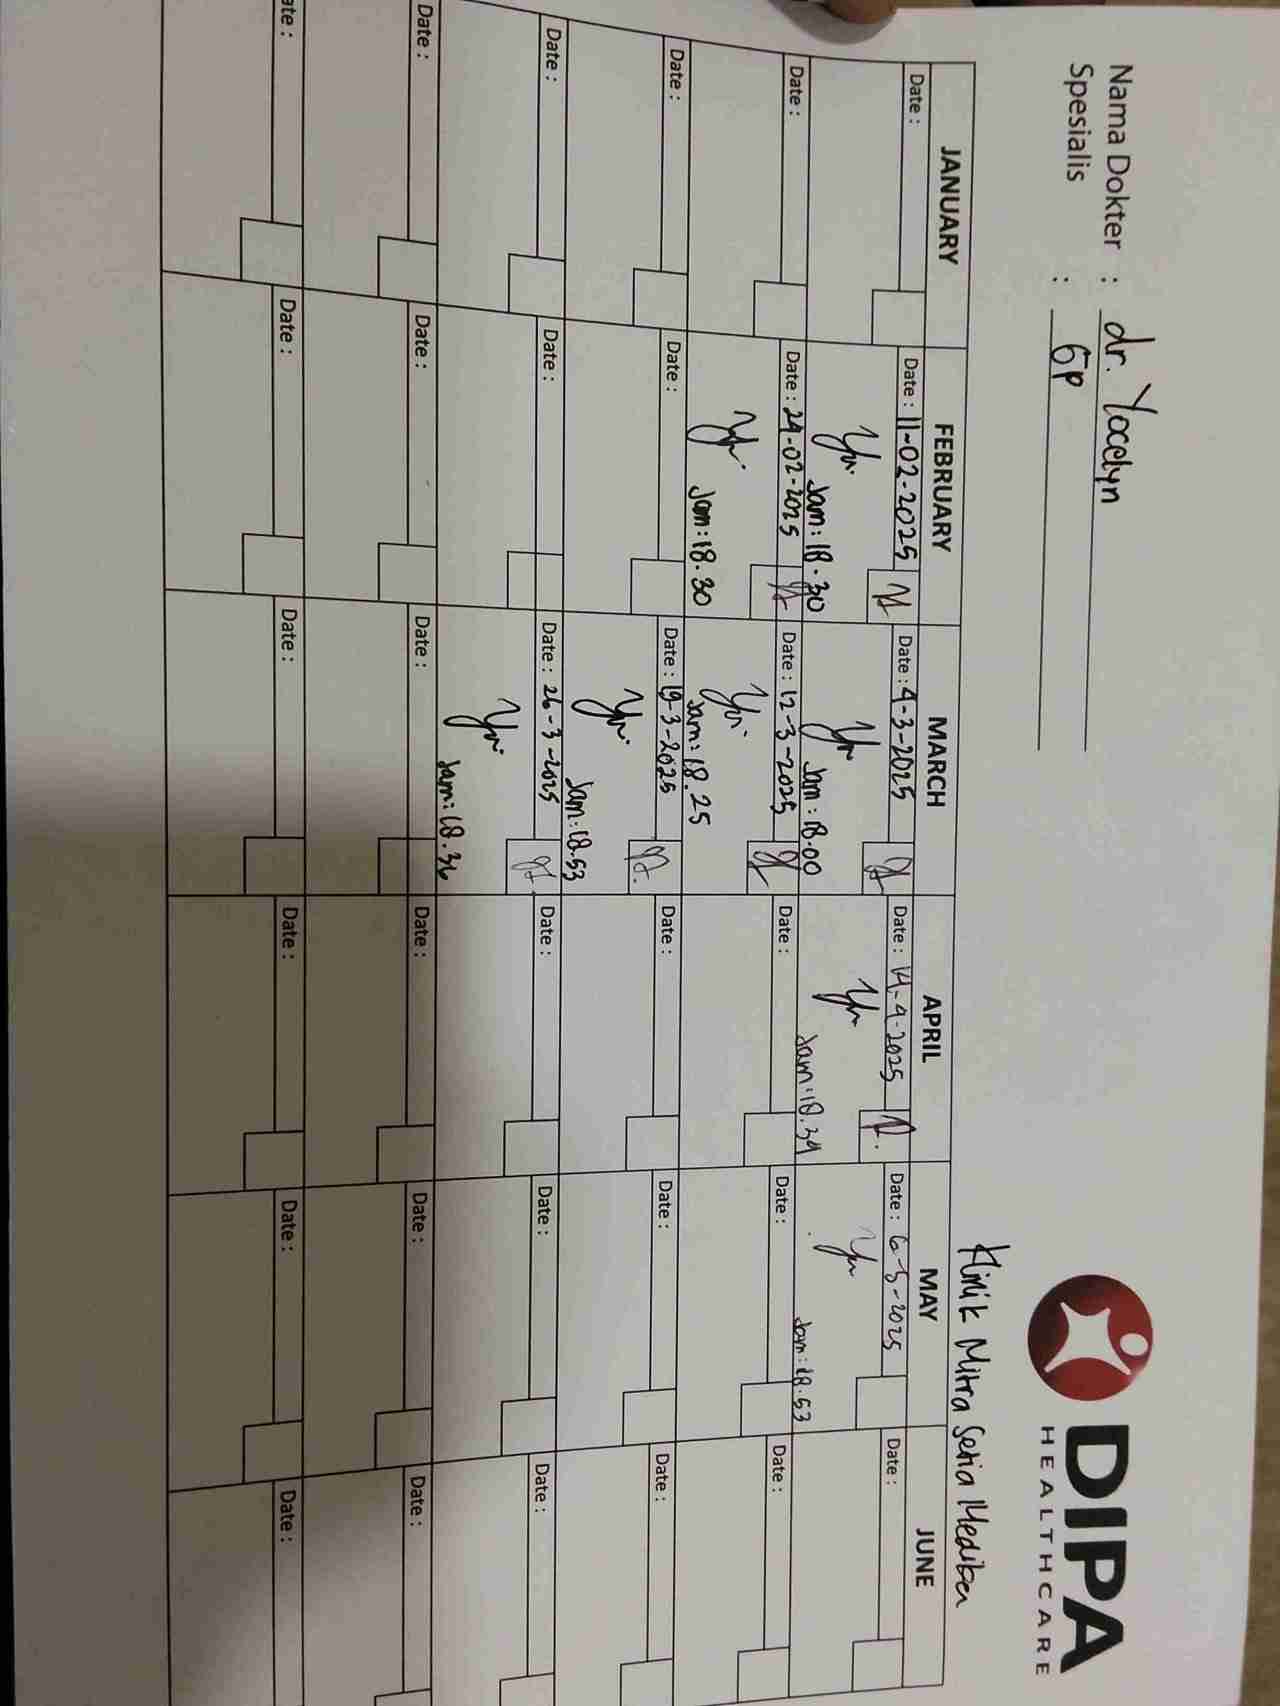 Nama Dokter : dr. Yocelyn
Spesialis : GP
DIPA
HEALTHCARE
Klinik Mitra Setia
JANUARY FEBRUARY MARCH APRIL MAY JUNE
Date : Date : 11-02-2025 Date : 4-3-2025 Date : 14-4-2025 Date : 6-5-2025 Date :
Jam : 18.30 Jam : 18.00 Jam : 18.34 Jam : 18.53
Date : Date : 24-02-2025 Date : 12-3-2025 Date : Date : Date :
Jam : 18.30 Jam : 18.25
Date : Date : Date : 19-3-2025 Date : Date : Date :
Jam : 18.53
Date : Date : Date : 26-3-2025 Date : Date : Date :
Jam : 18.36
Date : Date : Date : Date : Date : Date :
ate : Date : Date : Date : Date : Date :